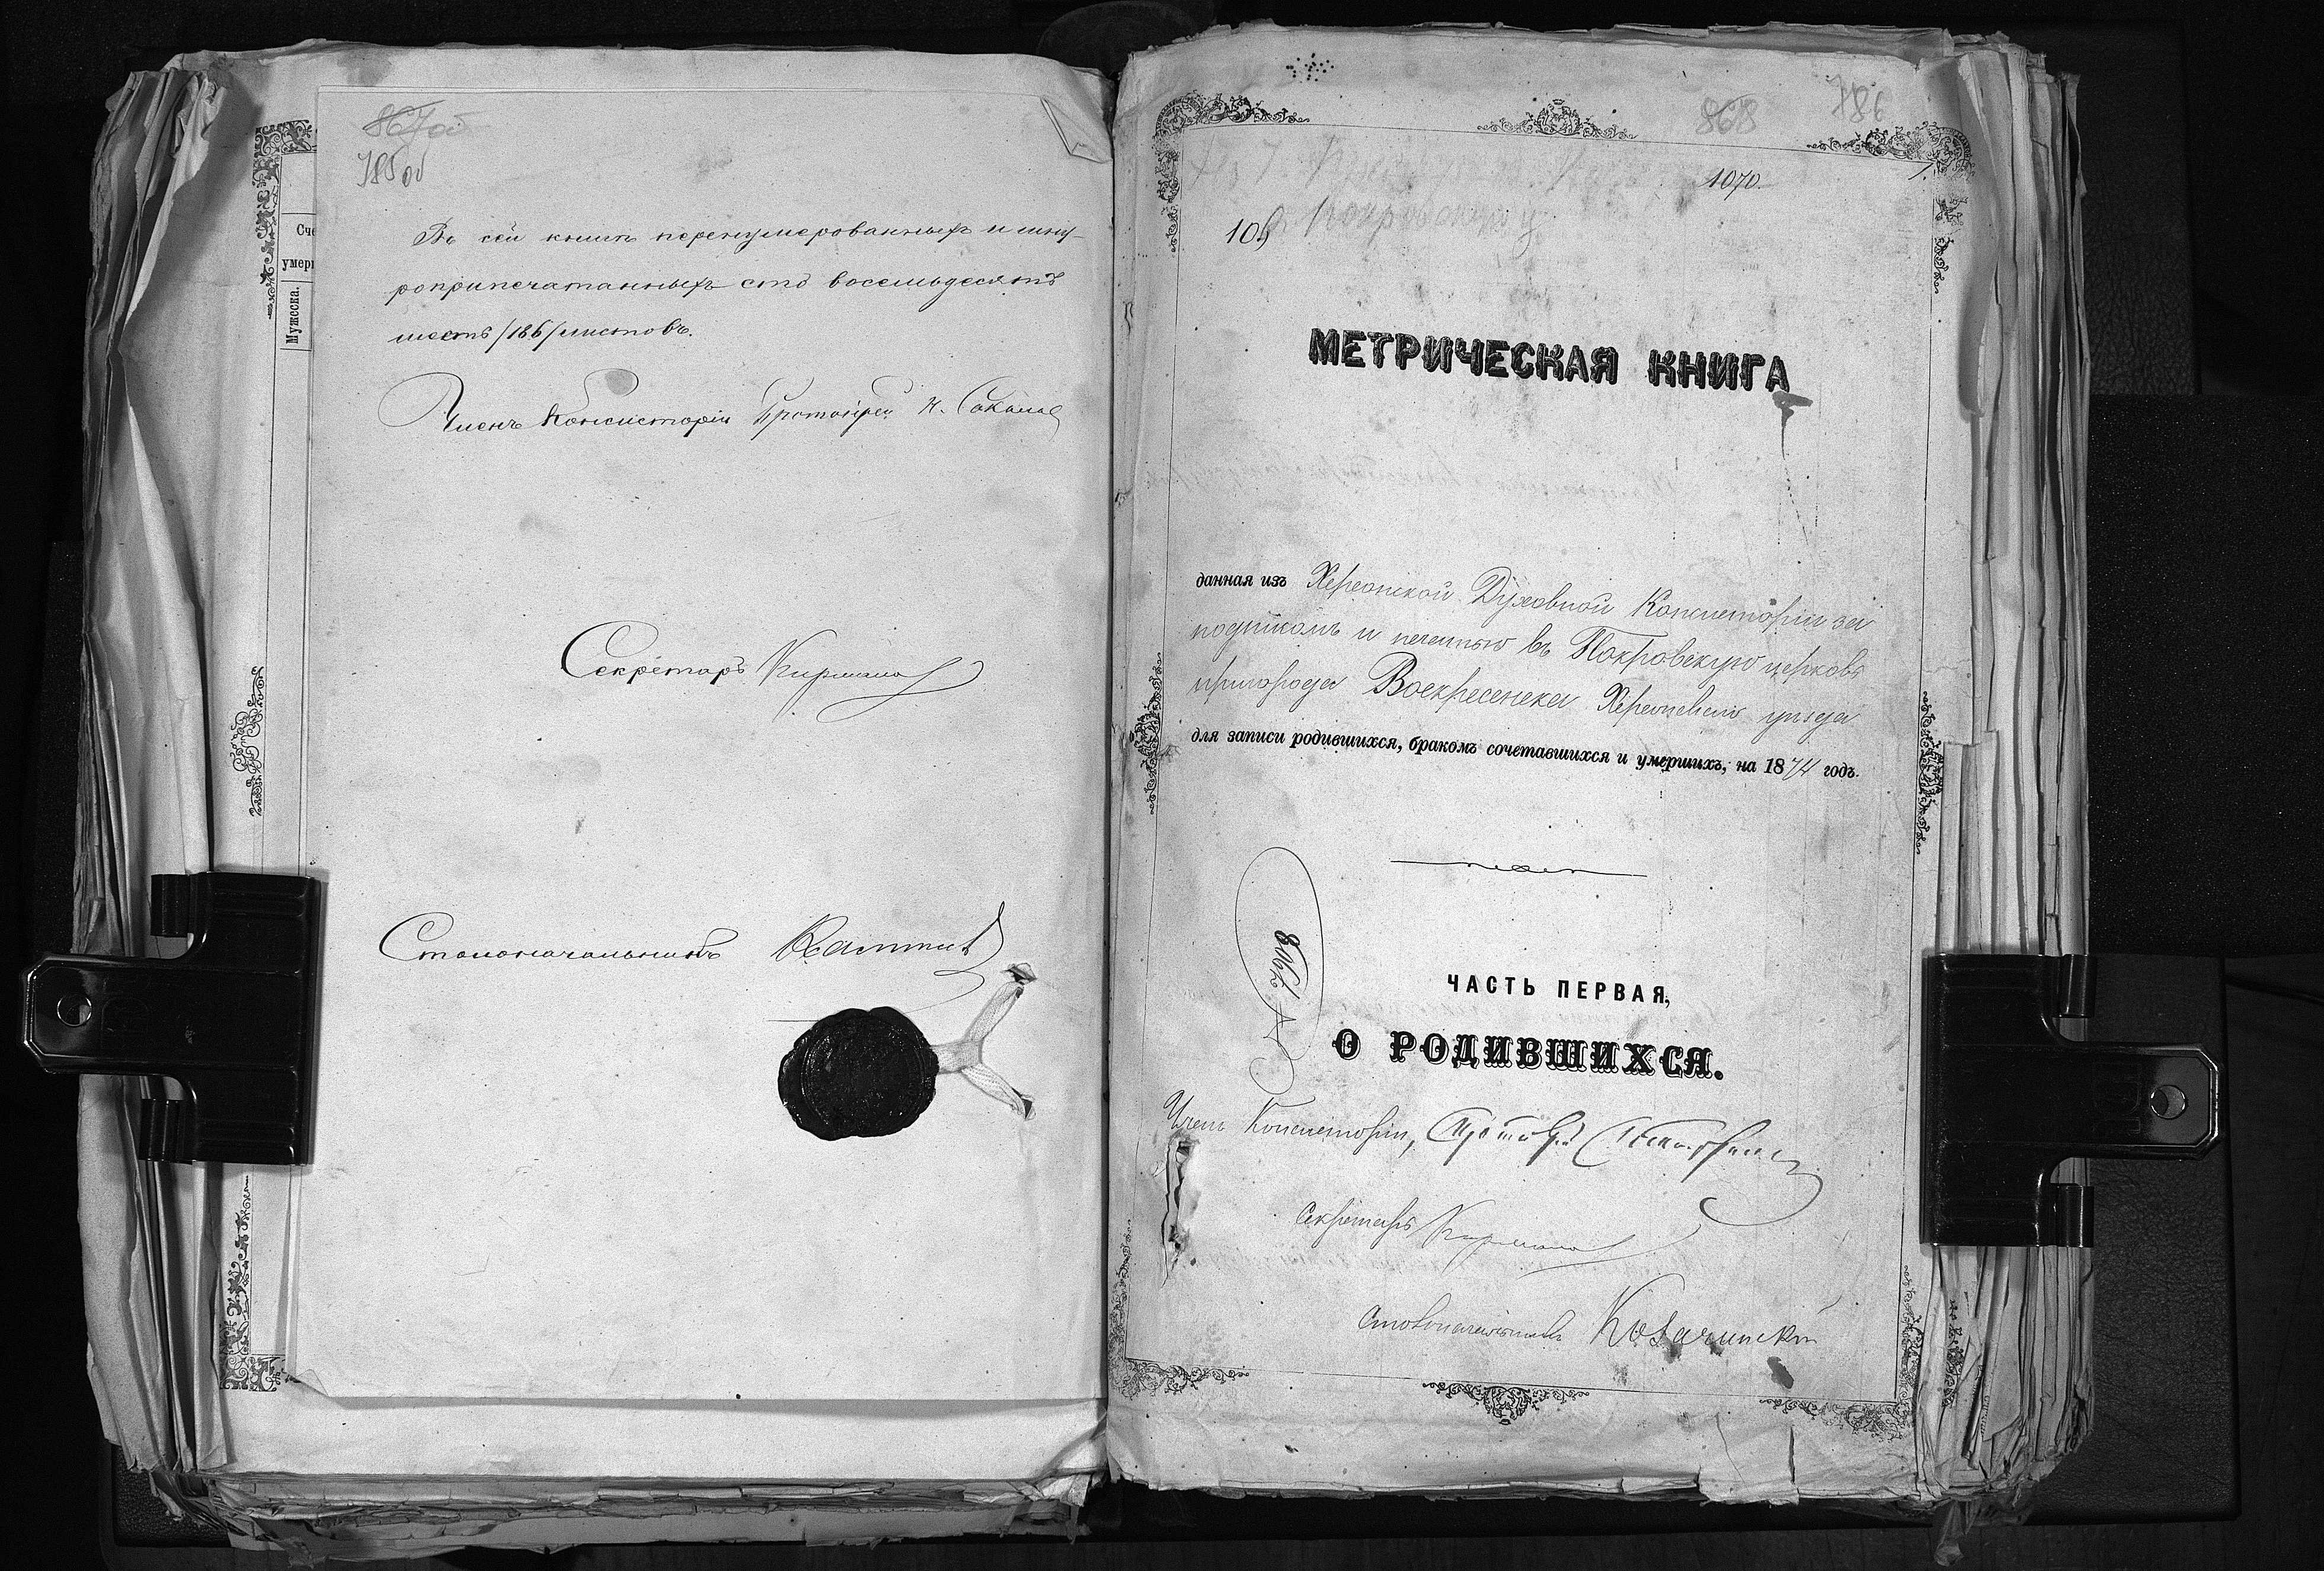 867 об
785 об
Сче
умерш
Мужеска.
Въ сей книгѣ перенумерованныхъ и шну-
роприпечатанныхъ сто восемьдесятъ
шесть /186/ листовъ.
Членъ Консисторіи Протоіерей Н. Соколов
Секретарь
Столоначальникъ
868 786
1070.
Покровскую
МЕТРИЧЕСКАЯ КНИГА
данная изъ Херсонской Духовной Консисторіи за
подписомъ и печатью въ Покровскую церковь
пригорода Воскресенска Херсонскаго уѣзда
для записи родившихся, бракомъ сочетавшихся и умершихъ, на 1874 годъ.
ЧАСТЬ ПЕРВАЯ,
О РОДИВШИХСЯ.
Членъ Консисторіи, Протоіерей
Секретарь
Столоначальникъ